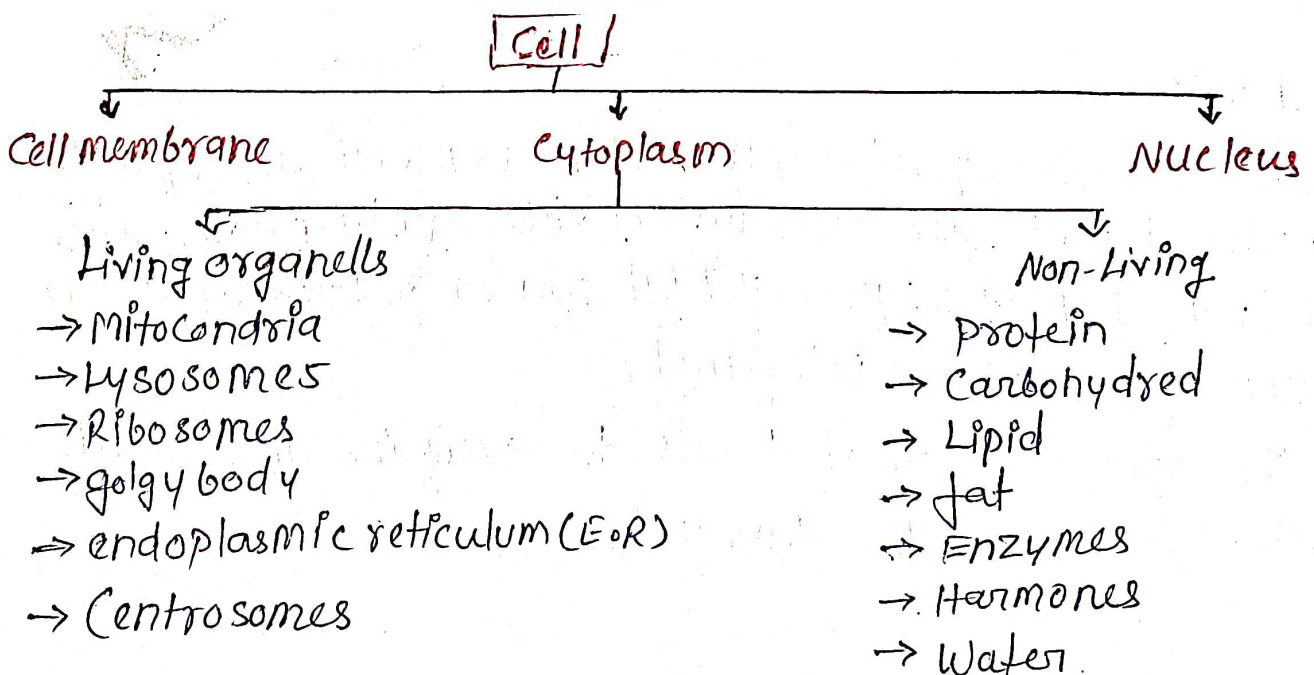 Cell
Cell membrane
Cytoplasm
Nucleus
Living organells
→ Mitocondria
→ Lysosomes
→ Ribosomes
→ golgy body
→ endoplasmic reticulum (E.R)
→ Centrosomes
Non-Living
→ protein
→ Carbohydred
→ Lipid
→ fat
→ Enzymes
→ Harmones
→ Water.